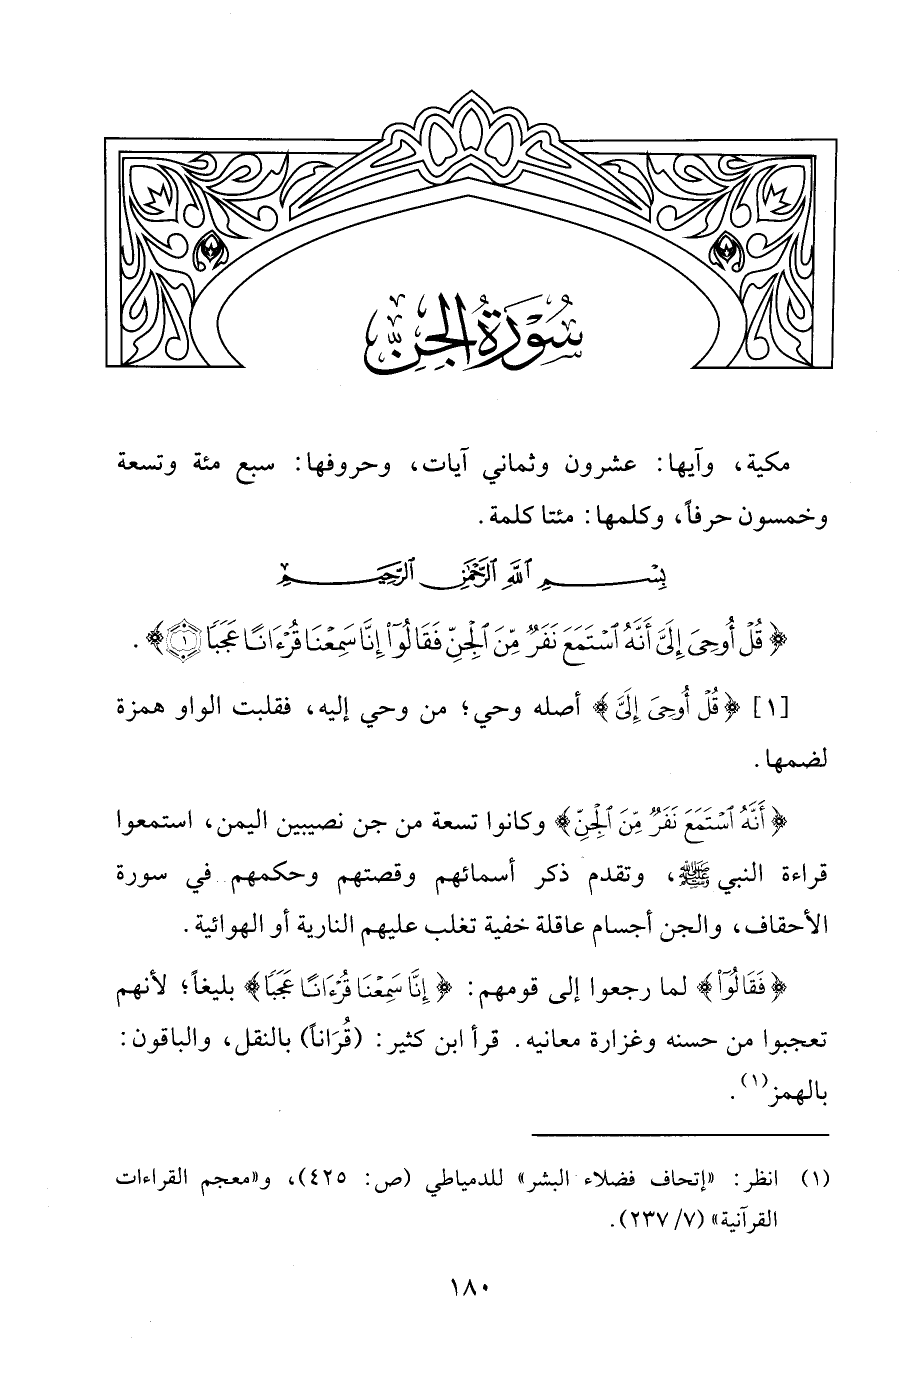 سُورَةُ الجِنِّ
مكية، وآيها: عشرون وثماني آيات، وحروفها: سبع مئة وتسعة
وخمسون حرفاً، وكلمها: مئتا كلمة.
بِسْمِ ٱللَّهِ ٱلرَّحْمَٰنِ ٱلرَّحِيمِ
﴿قُلْ أُوحِىَ إِلَىَّ أَنَّهُ ٱسْتَمَعَ نَفَرٌ مِّنَ ٱلْجِنِّ فَقَالُوٓا۟ إِنَّا سَمِعْنَا قُرْءَانًا عَجَبًا ١﴾.
[١] ﴿قُلْ أُوحِىَ إِلَىَّ﴾ أصله وحي؛ من وحي إليه، فقلبت الواو همزة
لضمها.
﴿أَنَّهُ ٱسْتَمَعَ نَفَرٌ مِّنَ ٱلْجِنِّ﴾ وكانوا تسعة من جن نصيبين اليمن، استمعوا
قراءة النبي ﷺ، وتقدم ذكر أسمائهم وقصتهم وحكمهم في سورة
الأحقاف، والجن أجسام عاقلة خفية تغلب عليهم النارية أو الهوائية.
﴿فَقَالُوٓا۟﴾ لما رجعوا إلى قومهم: ﴿إِنَّا سَمِعْنَا قُرْءَانًا عَجَبًا﴾ بليغاً؛ لأنهم
تعجبوا من حسنه وغزارة معانيه. قرأ ابن كثير: (قُرَاناً) بالنقل، والباقون:
بالهمز(١).
(١) انظر: «إتحاف فضلاء البشر» للدمياطي (ص: ٤٢٥)، و«معجم القراءات
القرآنية» (٧/ ٢٣٧).
١٨٠